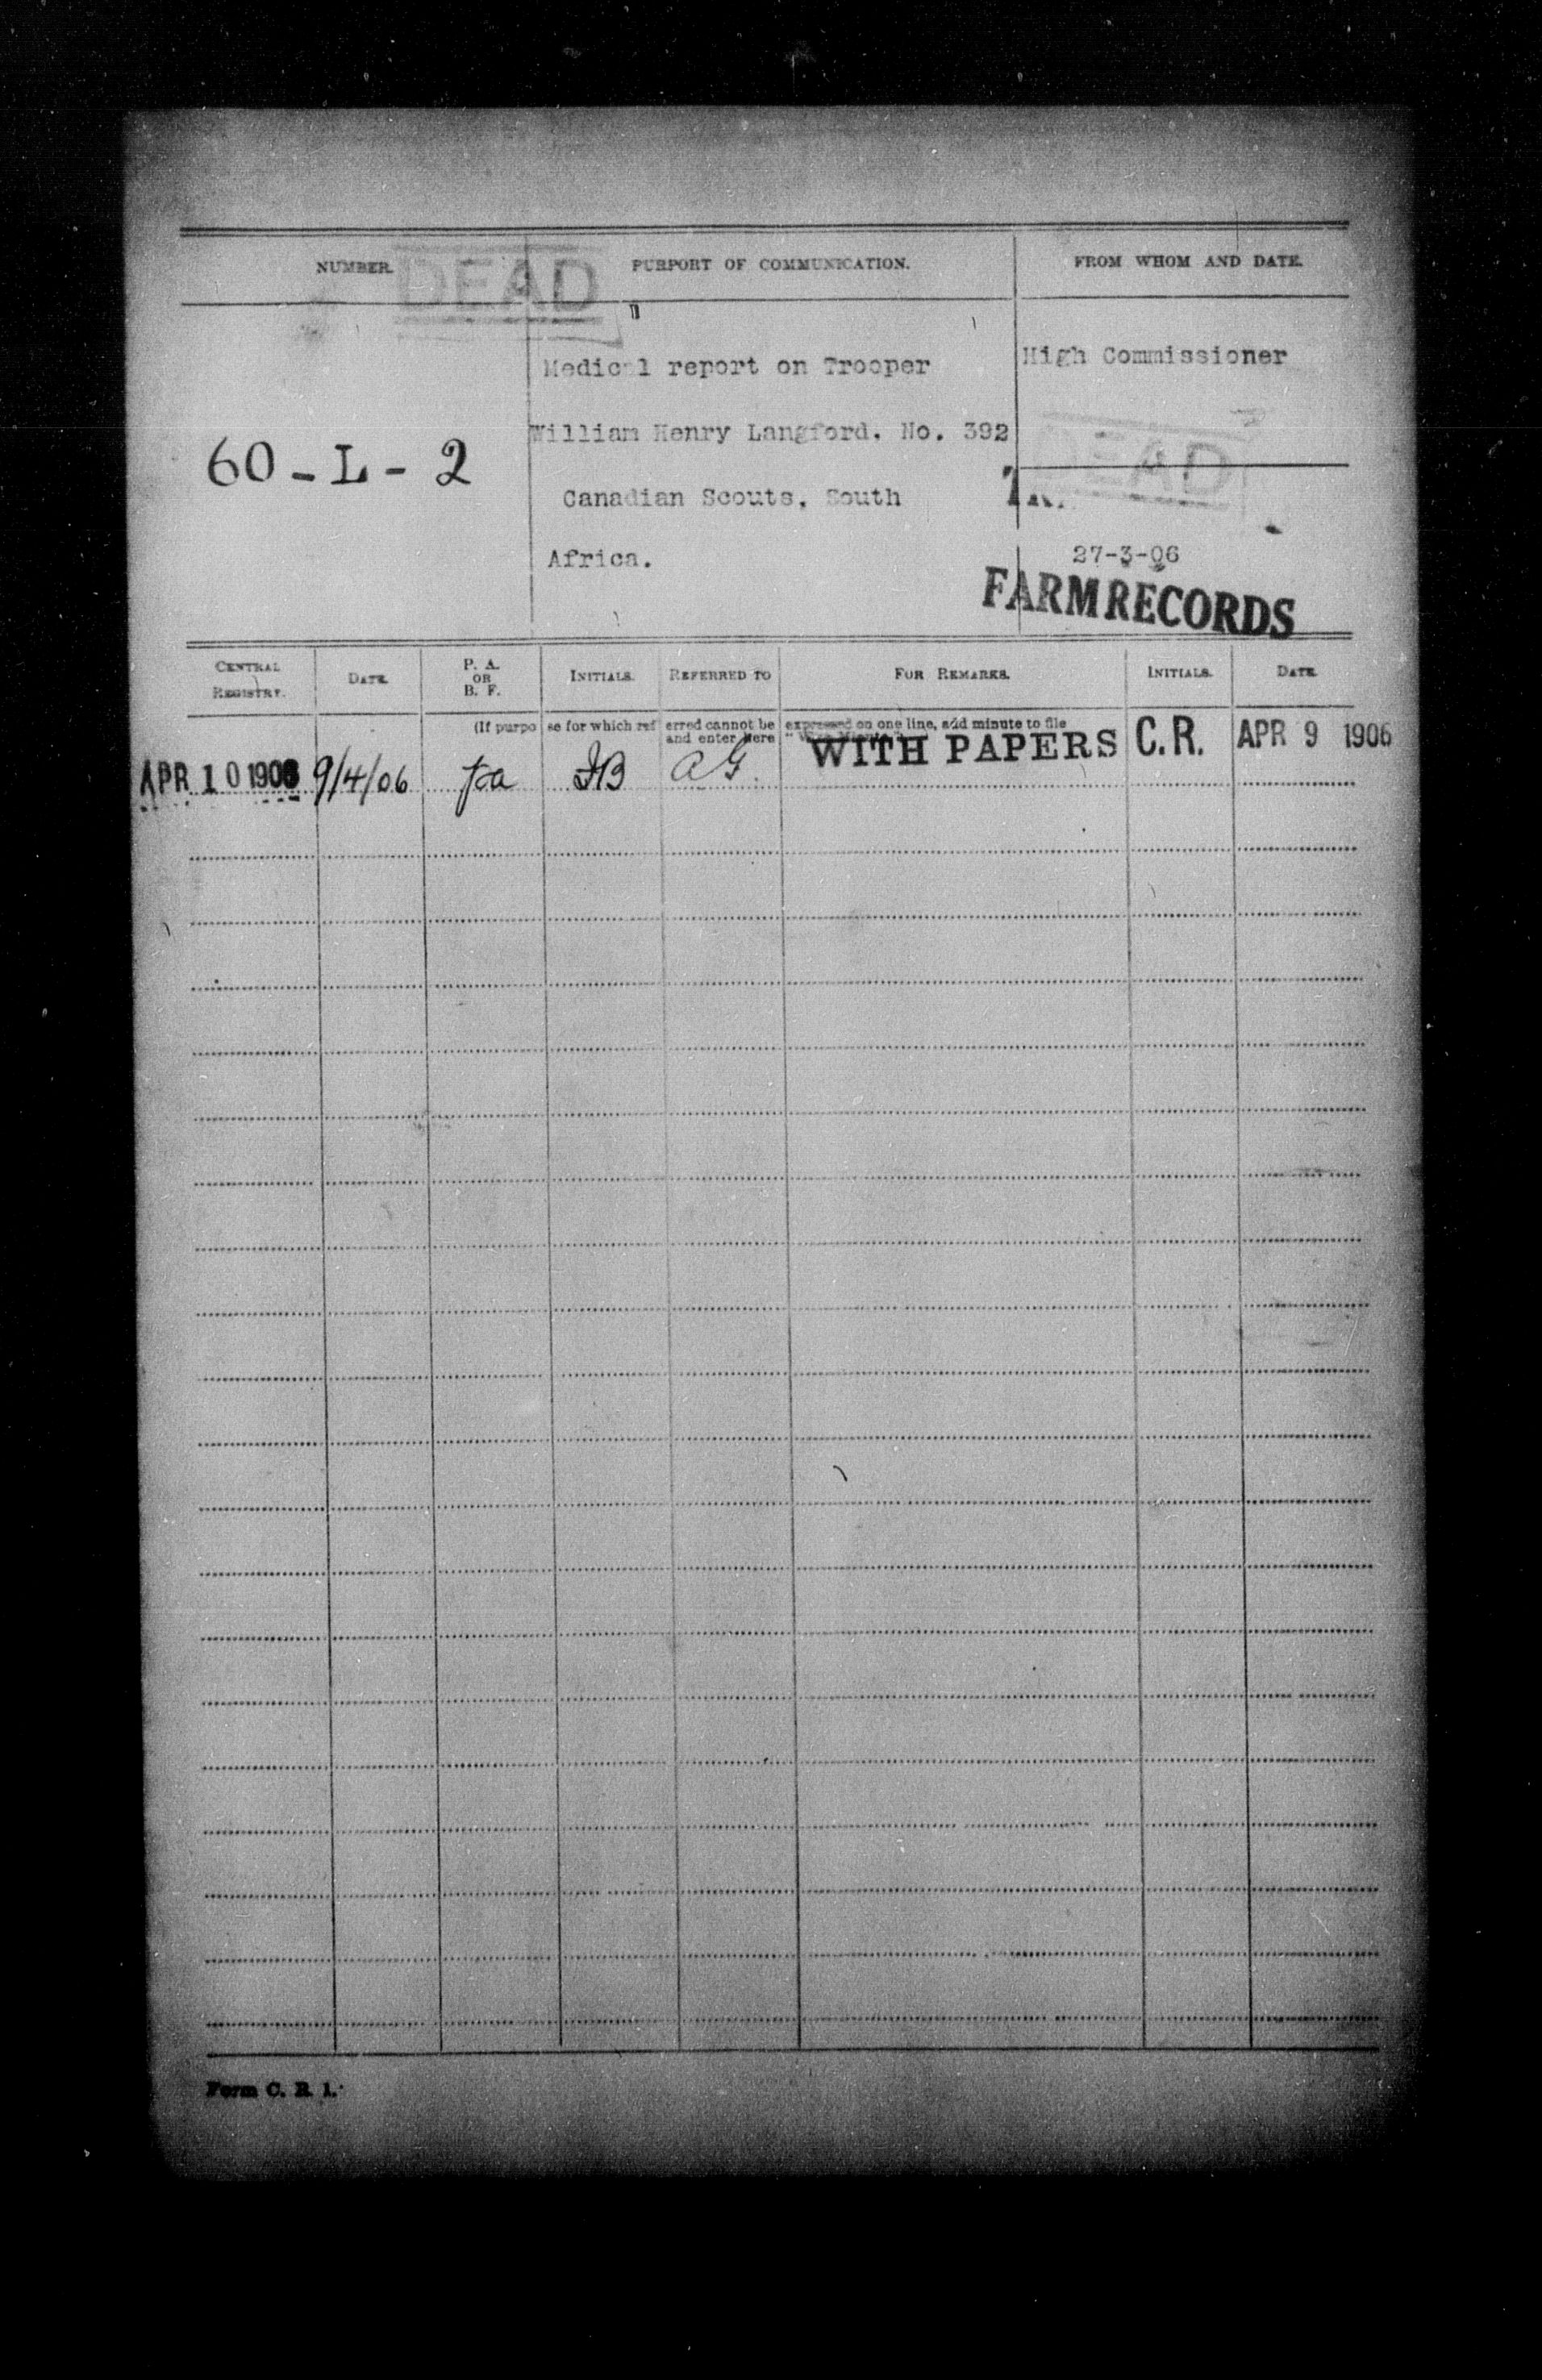 NUMBER.
DEAD
PURPORT OF COMMUNICATION.
FROM WHOM AND DATE.
60-L-2
Medical report on Trooper
William Henry Langford, No. 392
Canadian Scouts, South
Africa.
High Commissioner
DEAD
27-3-06
FARM RECORDS
CENTRAL REGISTRY.
DATE.
P. A. OR B. F.
INITIALS.
REFERRED TO
FOR REMARKS.
INITIALS.
DATE.
(If purpose for which referred cannot be expressed on one line, add minute to file
and enter here "
WITH PAPERS
C.R.
APR 9 1906
APR 10 1906
9/4/06
pa
AG.
Form C. R. 1.